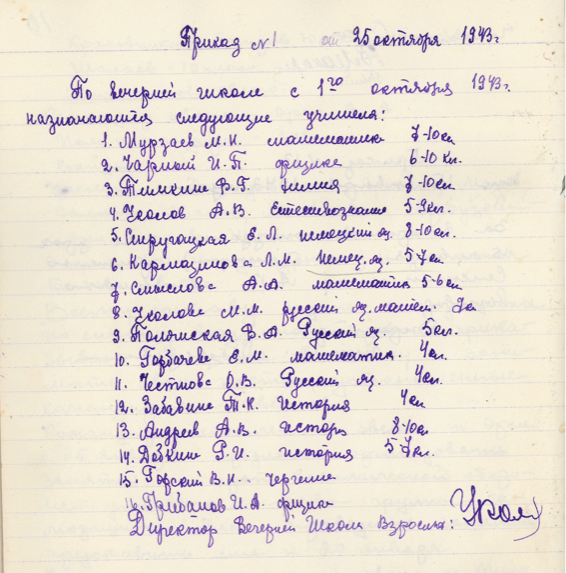 Приказ №1 от 25 октября 1943г.
По вечерней школе с 1го октября 1943г.
назначаются следующие учителя:
1. Мурзаев М.Н. математика 7-10кл
2. Чарный И.П. физика 6-10 кл.
3. Тимкин В.Г. химия 7-10кл.
4. Уколов А.В. Естествознание 5-9кл.
5. Стругацкая Е.Л. немецкий яз. 8-10кл.
6. Кармазинова Л.М. немец. яз. 5-7кл.
7. Смыслова А.А. математика 5-6кл
8. Уколова М.М. русский яз. матем. 7кл
9. Полянская В.А. Русский яз. 5кл.
10. Горбачева Е.М. математика. 4кл.
11. Честнова О.В. Русский яз. 4кл.
12. Забавина Т.К. история 4кл
13. Андреев А.В. истор 8-10кл
14. Добкин Р.И. история 5-7кл.
15. Горский В.Н. черчение
16. Грибанов И.А. физик
Директор Вечерней Школы Взрослых: Укол